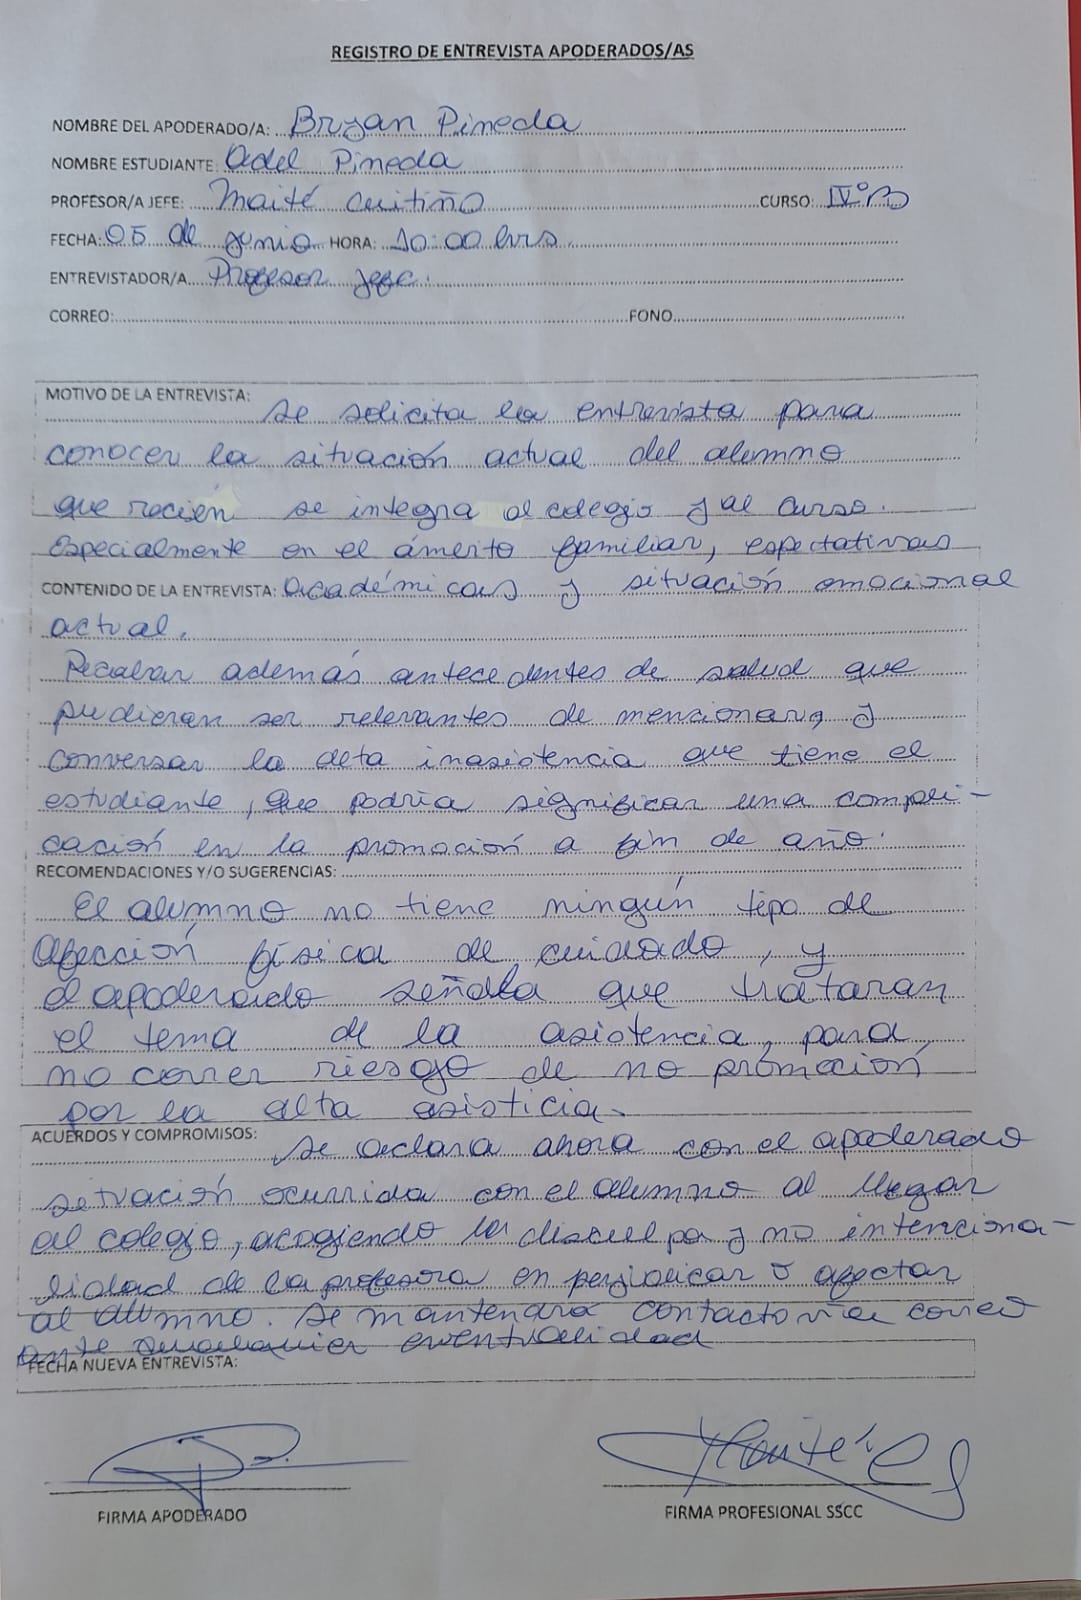 REGISTRO DE ENTREVISTA APODERADOS/AS
NOMBRE DEL APODERADO/A: Bryan Pineda
NOMBRE ESTUDIANTE: Adel Pineda
PROFESOR/A JEFE: Maité Cuitiño CURSO: IV°B
FECHA: 05 de junio HORA: 10:00 hrs.
ENTREVISTADOR/A Profesor jefe.
CORREO: FONO
MOTIVO DE LA ENTREVISTA:
Se solicita la entrevista para
conocer la situación actual del alumno
que recién se integra al colegio y al curso.
Especialmente en el ámbito familiar, espectativas
CONTENIDO DE LA ENTREVISTA: académicas y situación emocional
actual.
Recabar además antecedentes de salud que
pudieran ser relevantes de mencionar, y
conversar la alta inasistencia que tiene el
estudiante, que podría significar una compli-
cación en la promoción a fin de año.
RECOMENDACIONES Y/O SUGERENCIAS:
El alumno no tiene ningún tipo de
afección física de cuidado, y
el apoderado señala que trataran
el tema de la asistencia, para
no correr riesgo de no promoción
por la alta asisticia.
ACUERDOS Y COMPROMISOS:
Se aclara ahora con el apoderado
situación ocurrida con el alumno al llegar
al colegio, acogiendo la disculpa y no intenciona-
lidad de la profesora en perjudicar o afectar
al alumno. Se mantendrá contacto vía correo
ante cualquier eventualidad
FECHA NUEVA ENTREVISTA:
Maité C
FIRMA APODERADO FIRMA PROFESIONAL SSCC